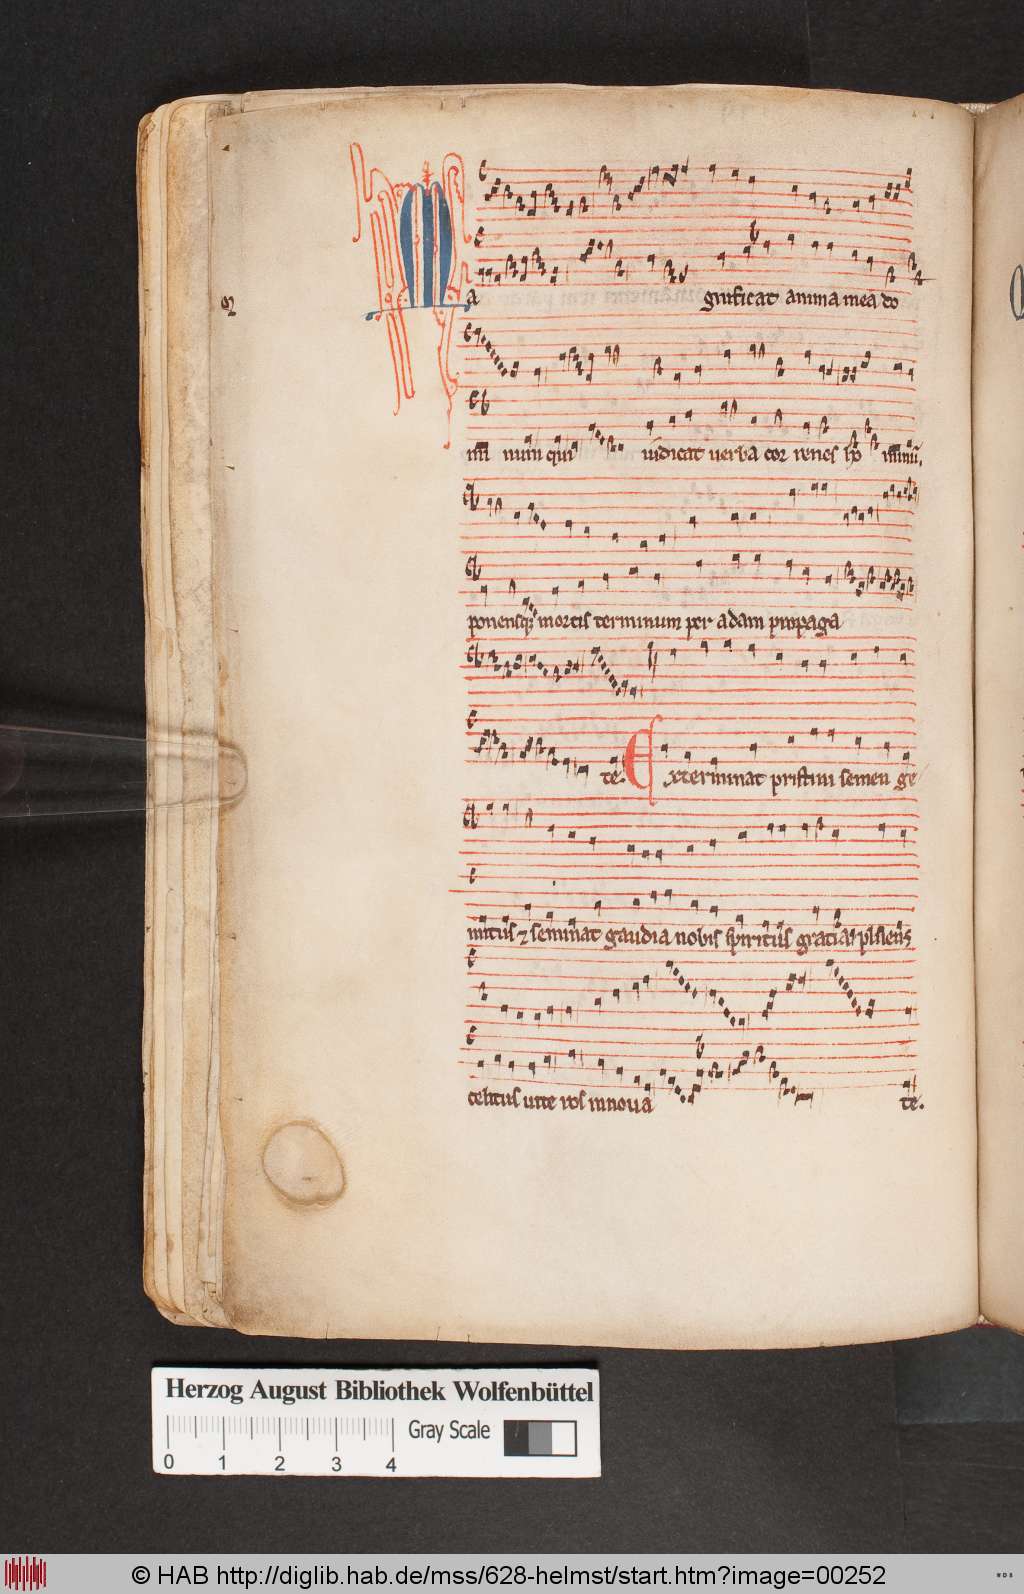 Ma gnificat anima mea do
mi num qui iudicat uerba cor renes ho minū.
ponensq; mortis terminum per adam propaga
te. Exterminat pristini semen ge
mitus ⁊ seminat gaudia nobis spiritus gratia
celitus uite ros innoua te.
Herzog August Bibliothek Wolfenbüttel
Gray Scale
0 1 2 3 4
© HAB http://diglib.hab.de/mss/628-helmst/start.htm?image=00252